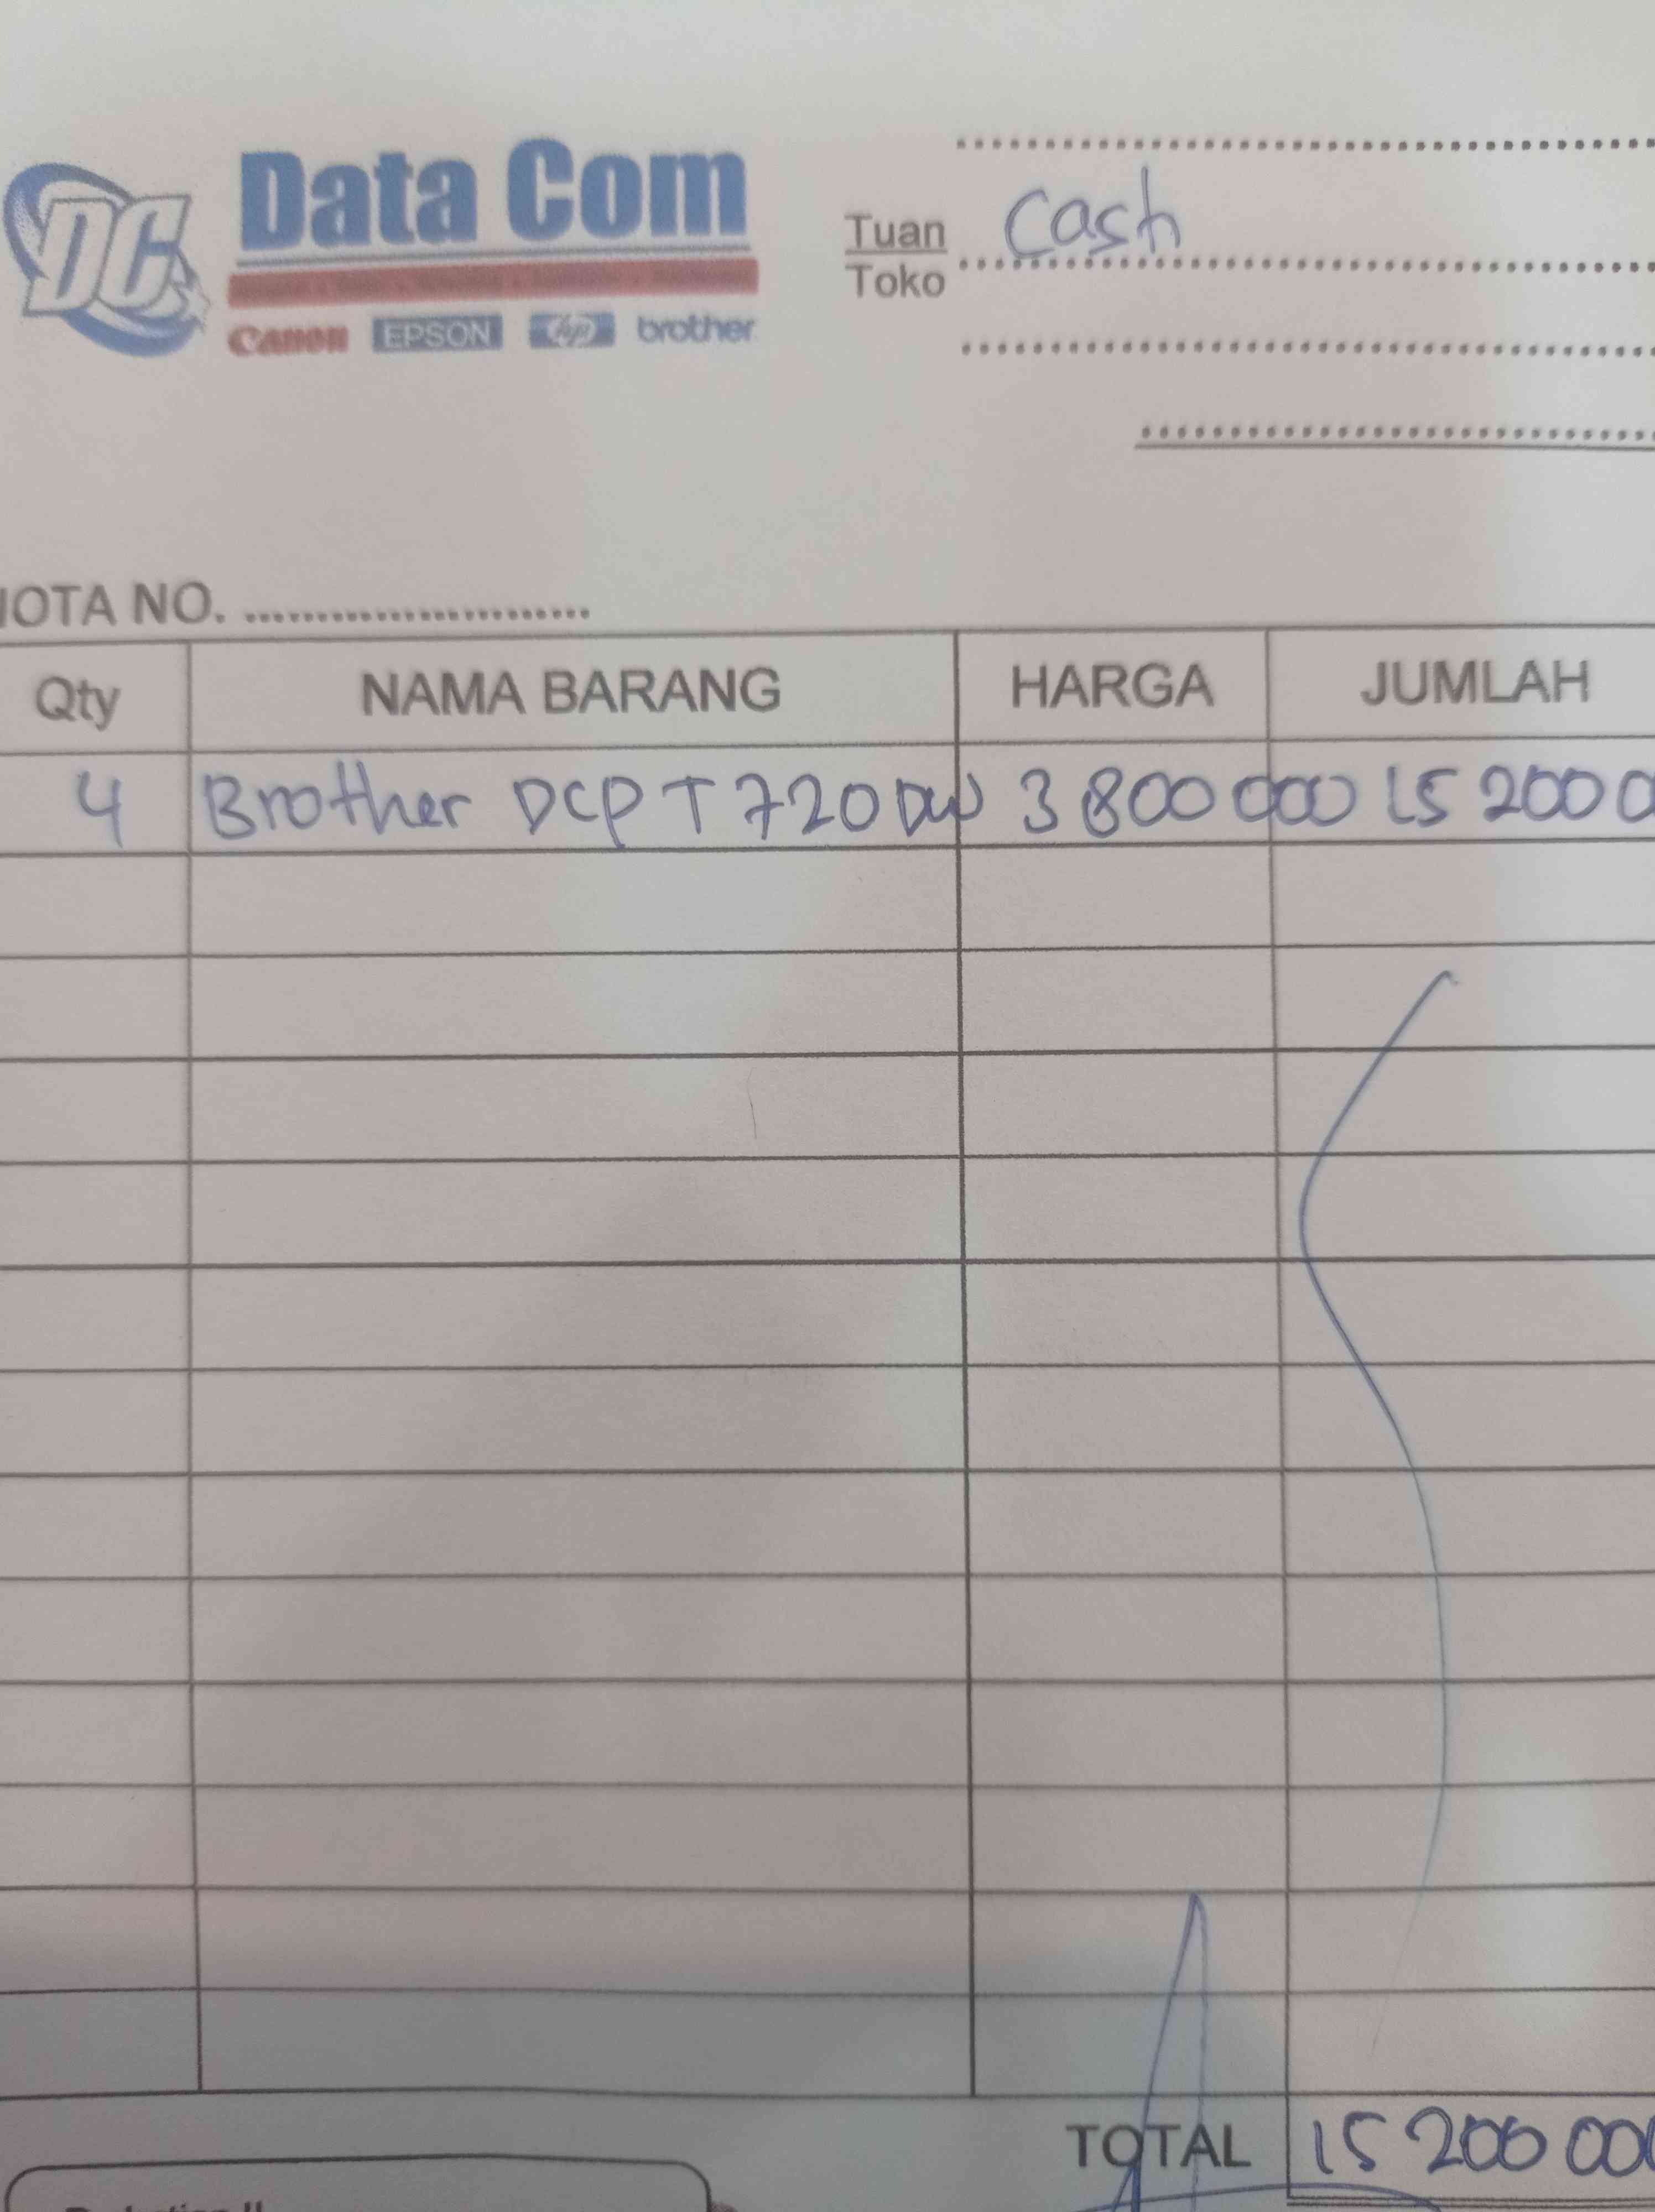 DC
Data Com
Canon EPSON hp brother
Tuan Cash
Toko
NOTA NO.
Qty NAMA BARANG HARGA JUMLAH
4 Brother DCP T720DW 3 800 000 15 200 0
TOTAL 15 200 000